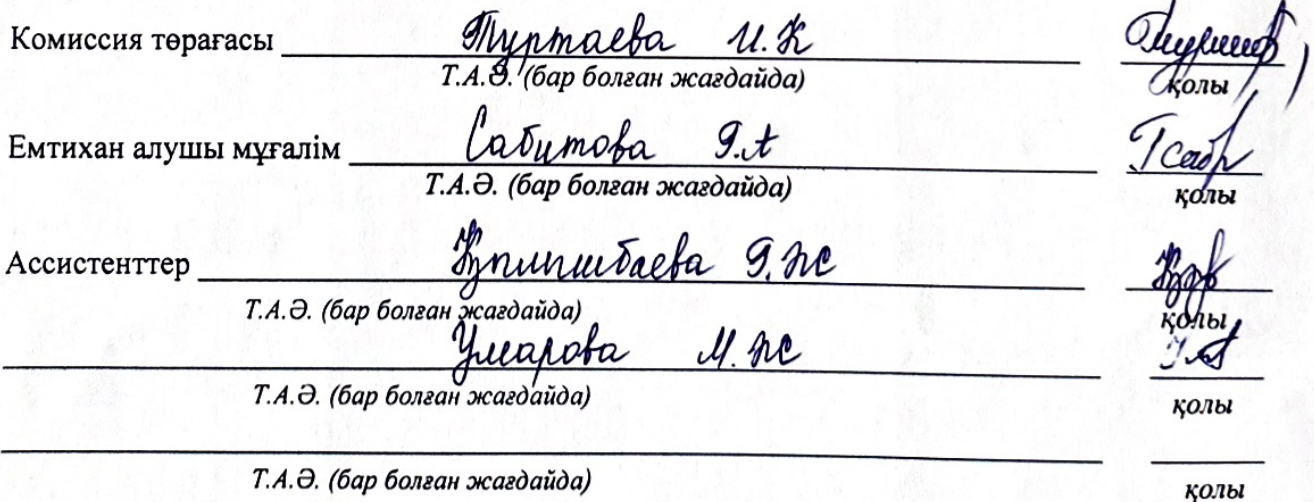 Комиссия төрағасы Туртаева И.К
Т.А.Ә. (бар болған жағдайда) қолы
Емтихан алушы мұғалім Сабитова Г.А
Т.А.Ә. (бар болған жағдайда) қолы
Ассистенттер Г.Ж
Т.А.Ә. (бар болған жағдайда) қолы
Умарова М.Ж
Т.А.Ә. (бар болған жағдайда) қолы
Т.А.Ә. (бар болған жағдайда) қолы